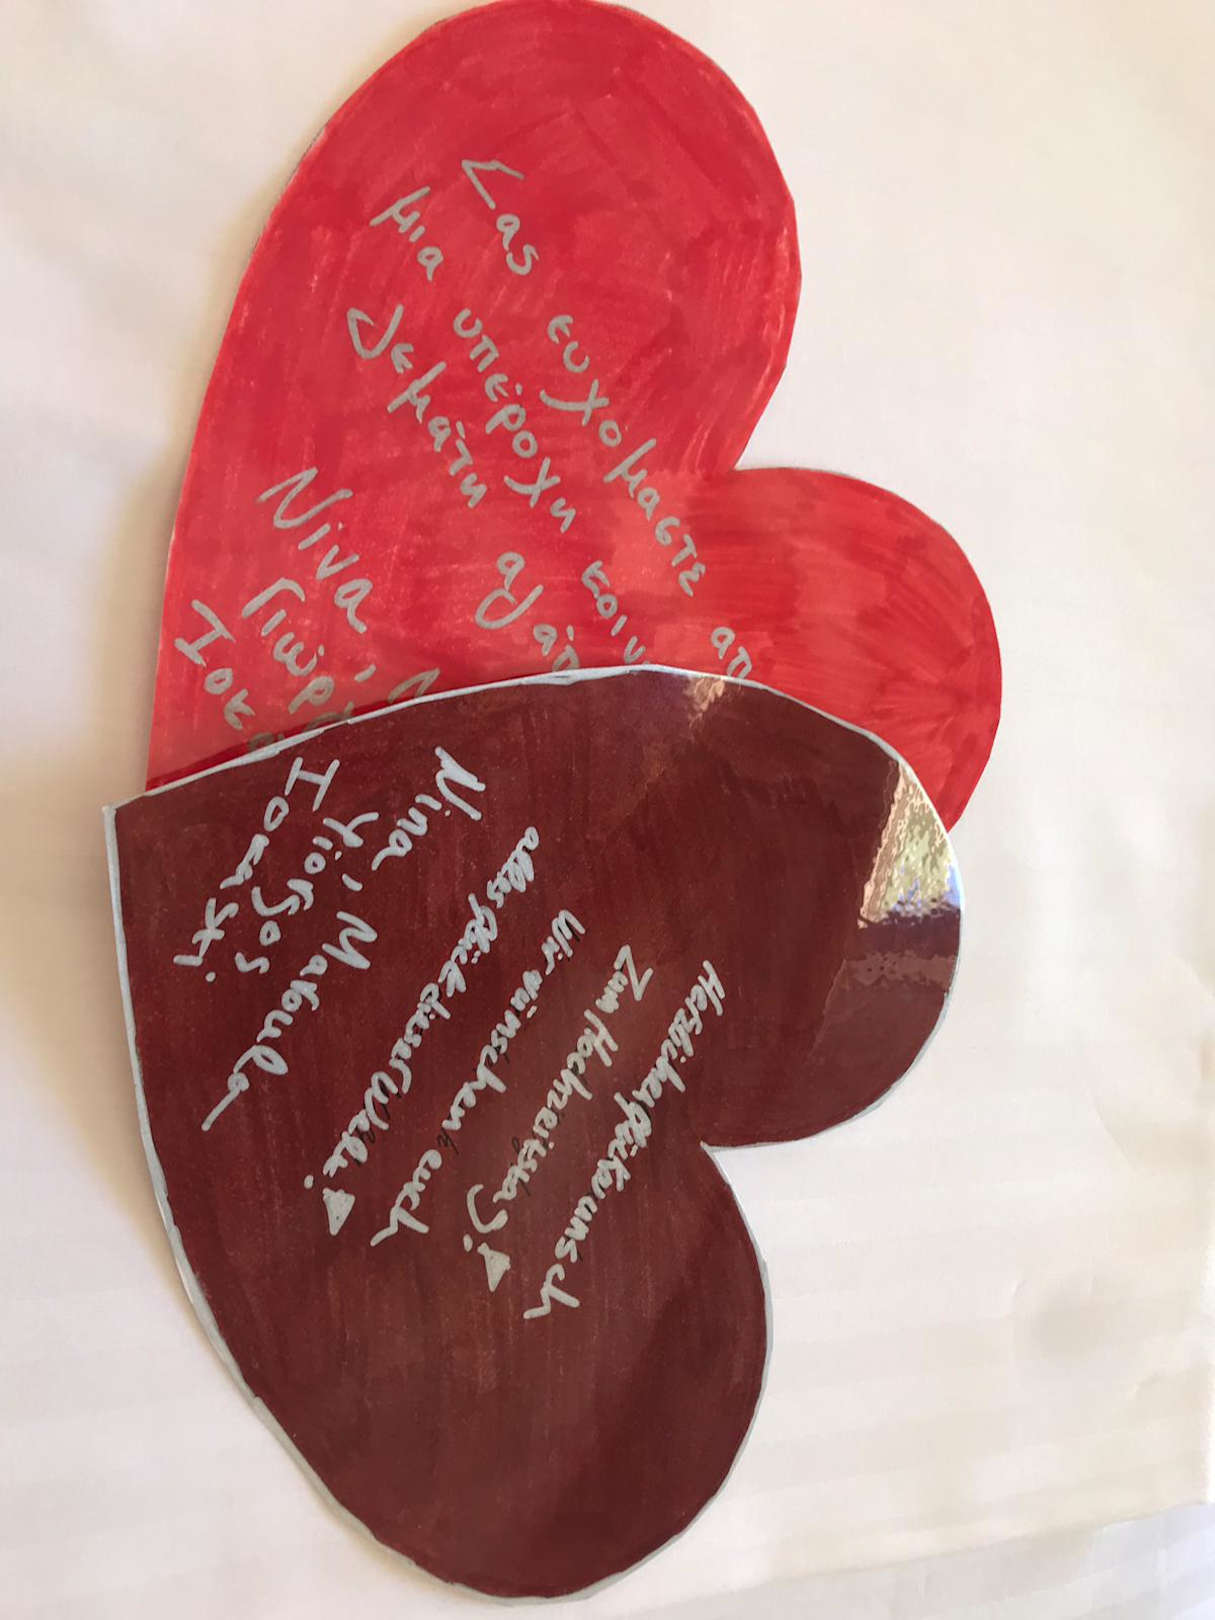 Σας ευχόμαστε απ
μια υπέροχη κοιν
γεμάτη αγάπ
Νίνα
Γιώργ
Ιοκα
Herzlichesglückwunsch
Zum Hochzeitstag!
Wir wünschen euch
alles glück dieser Welt!
Nina, Maroula
Yiorgos
Iokasti